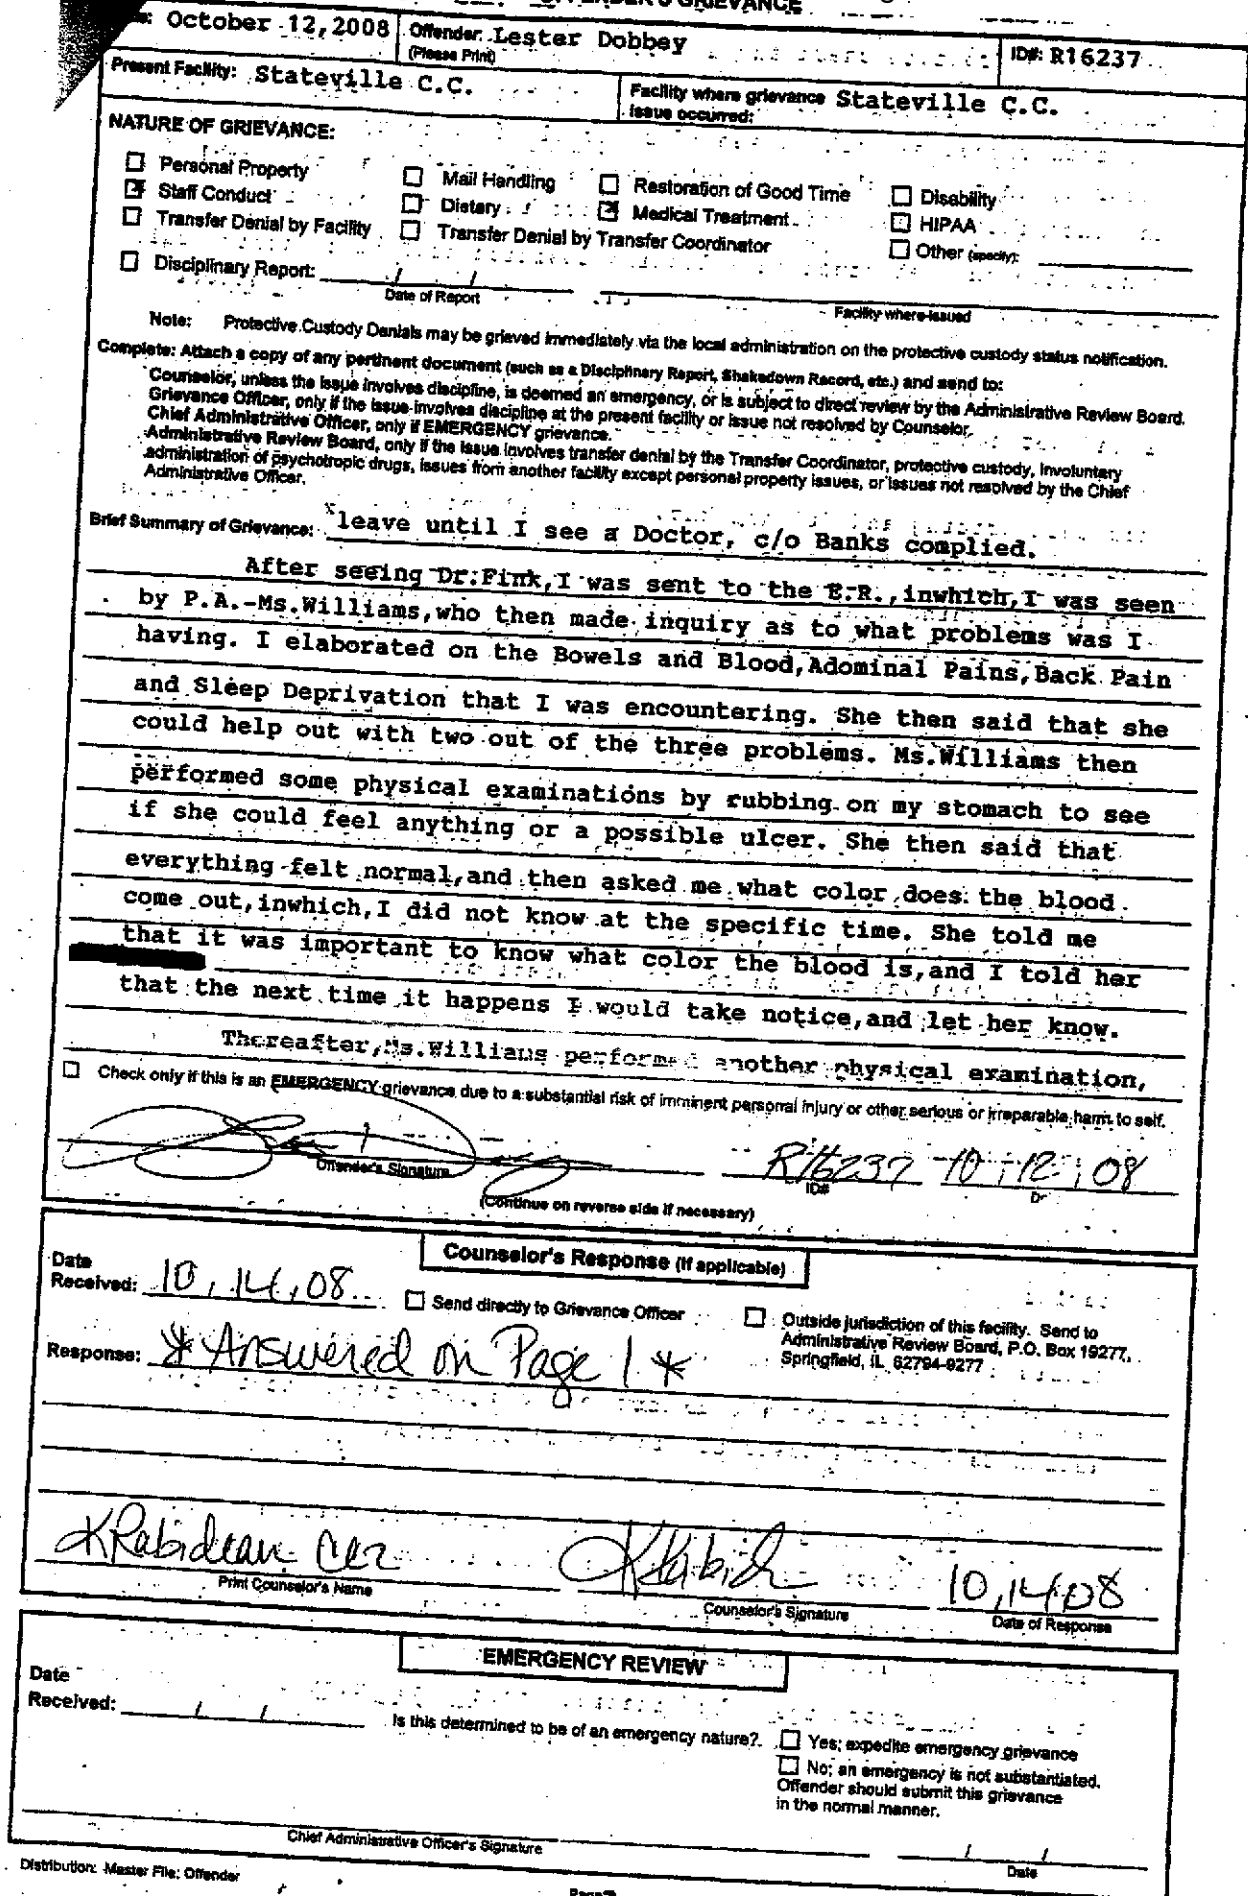 OFFENDER'S GRIEVANCE
October 12, 2008 Offender: Lester Dobbey ID#: R16237
(Please Print)
Present Facility: Stateville C.C. Facility where grievance issue occurred: Stateville C.C.
NATURE OF GRIEVANCE:
☐ Personal Property ☐ Mail Handling ☐ Restoration of Good Time ☐ Disability
☒ Staff Conduct ☐ Dietary ☒ Medical Treatment ☐ HIPAA
☐ Transfer Denial by Facility ☐ Transfer Denial by Transfer Coordinator ☐ Other (specify):
☐ Disciplinary Report: / /
Date of Report Facility where issued
Note: Protective Custody Denials may be grieved immediately via the local administration on the protective custody status notification.
Complete: Attach a copy of any pertinent document (such as a Disciplinary Report, Shakedown Record, etc.) and send to:
Counselor, unless the issue involves discipline, is deemed an emergency, or is subject to direct review by the Administrative Review Board.
Grievance Officer, only if the issue involves discipline at the present facility or issue not resolved by Counselor.
Chief Administrative Officer, only if EMERGENCY grievance.
Administrative Review Board, only if the issue involves transfer denial by the Transfer Coordinator, protective custody, involuntary
administration of psychotropic drugs, issues from another facility except personal property issues, or issues not resolved by the Chief
Administrative Officer.
Brief Summary of Grievance: leave until I see a Doctor, c/o Banks complied.
After seeing Dr.Fink,I was sent to the E.R.,inwhich,I was seen
by P.A.-Ms.Williams,who then made inquiry as to what problems was I
having. I elaborated on the Bowels and Blood,Adominal Pains,Back Pain
and Sleep Deprivation that I was encountering. She then said that she
could help out with two out of the three problems. Ms.Williams then
performed some physical examinations by rubbing on my stomach to see
if she could feel anything or a possible ulcer. She then said that
everything felt normal,and then asked me what color does the blood
come out,inwhich,I did not know at the specific time. She told me
that it was important to know what color the blood is,and I told her
that the next time it happens I would take notice,and let her know.
Thereafter,Ms.Williams performed another physical examination,
☐ Check only if this is an EMERGENCY grievance due to a substantial risk of imminent personal injury or other serious or irreparable harm to self.
R16237 10/12/08
Offender's Signature ID#
(Continue on reverse side if necessary)
Counselor's Response (if applicable)
Date
Received: 10/14/08 ☐ Send directly to Grievance Officer ☐ Outside jurisdiction of this facility. Send to
Administrative Review Board, P.O. Box 19277,
Springfield, IL 62794-9277
Response: * Answered on Page 1 *
K Rabideau CC2 10/14/08
Print Counselor's Name Counselor's Signature Date of Response
EMERGENCY REVIEW
Date
Received: / / Is this determined to be of an emergency nature? ☐ Yes; expedite emergency grievance
☐ No; an emergency is not substantiated.
Offender should submit this grievance
in the normal manner.
/ /
Chief Administrative Officer's Signature Date
Distribution: Master File; Offender Page